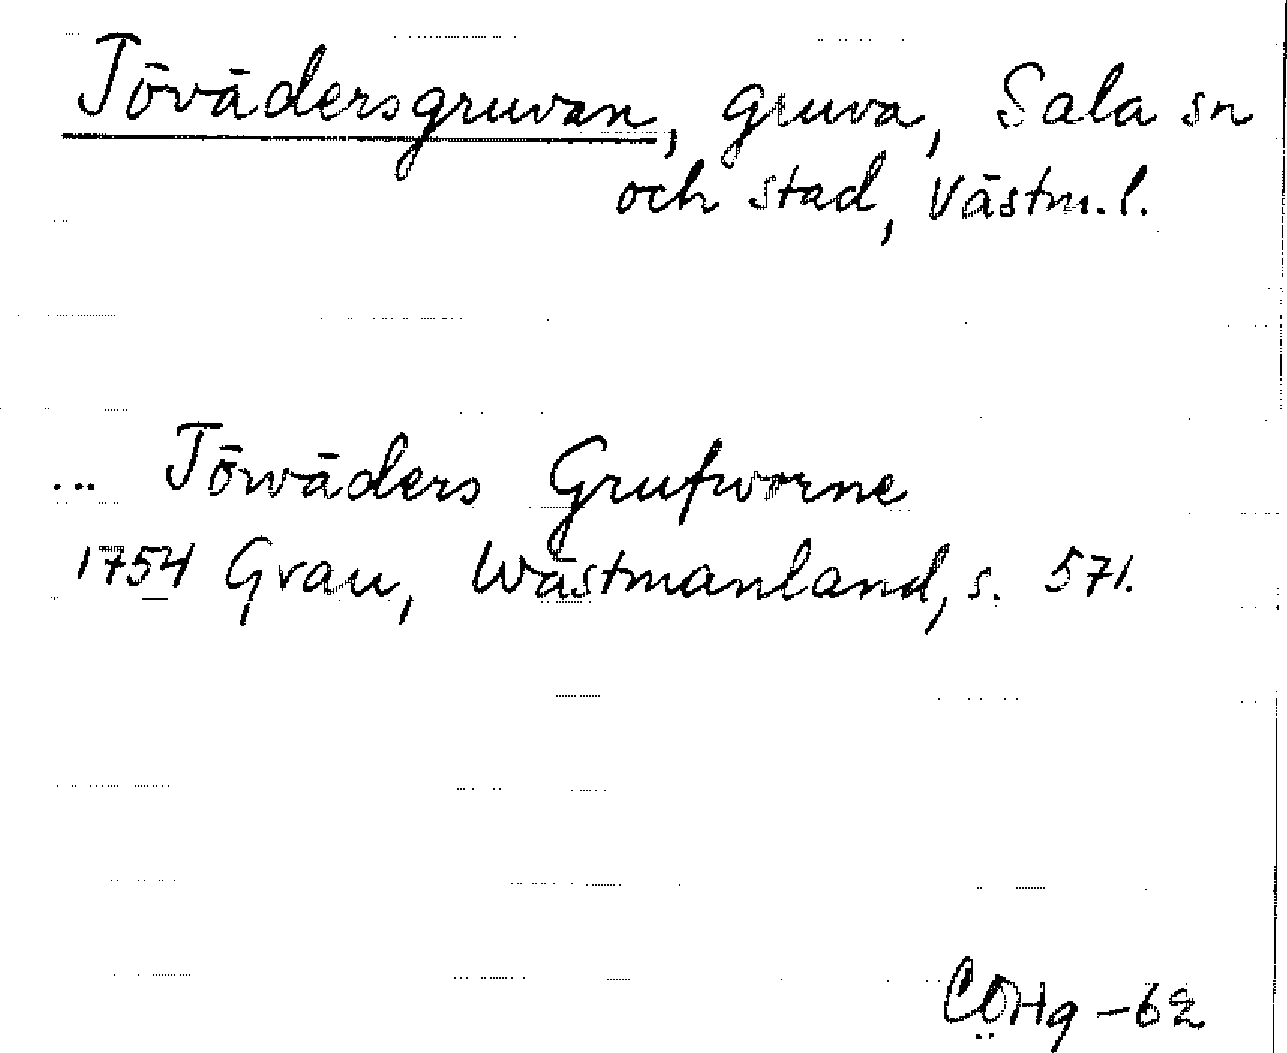 Tövädersgruvan, gruva, Sala sn
och stad, Västm. l.
... Töwäders Grufworne
1754 Grau, Wästmanland, s. 571.
CÖHg - 62